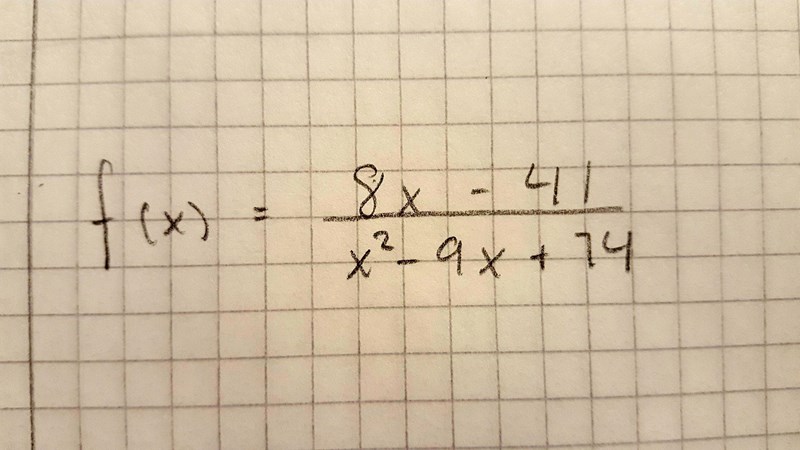 f(x) = \frac{8x - 41}{x² - 9x + 14}